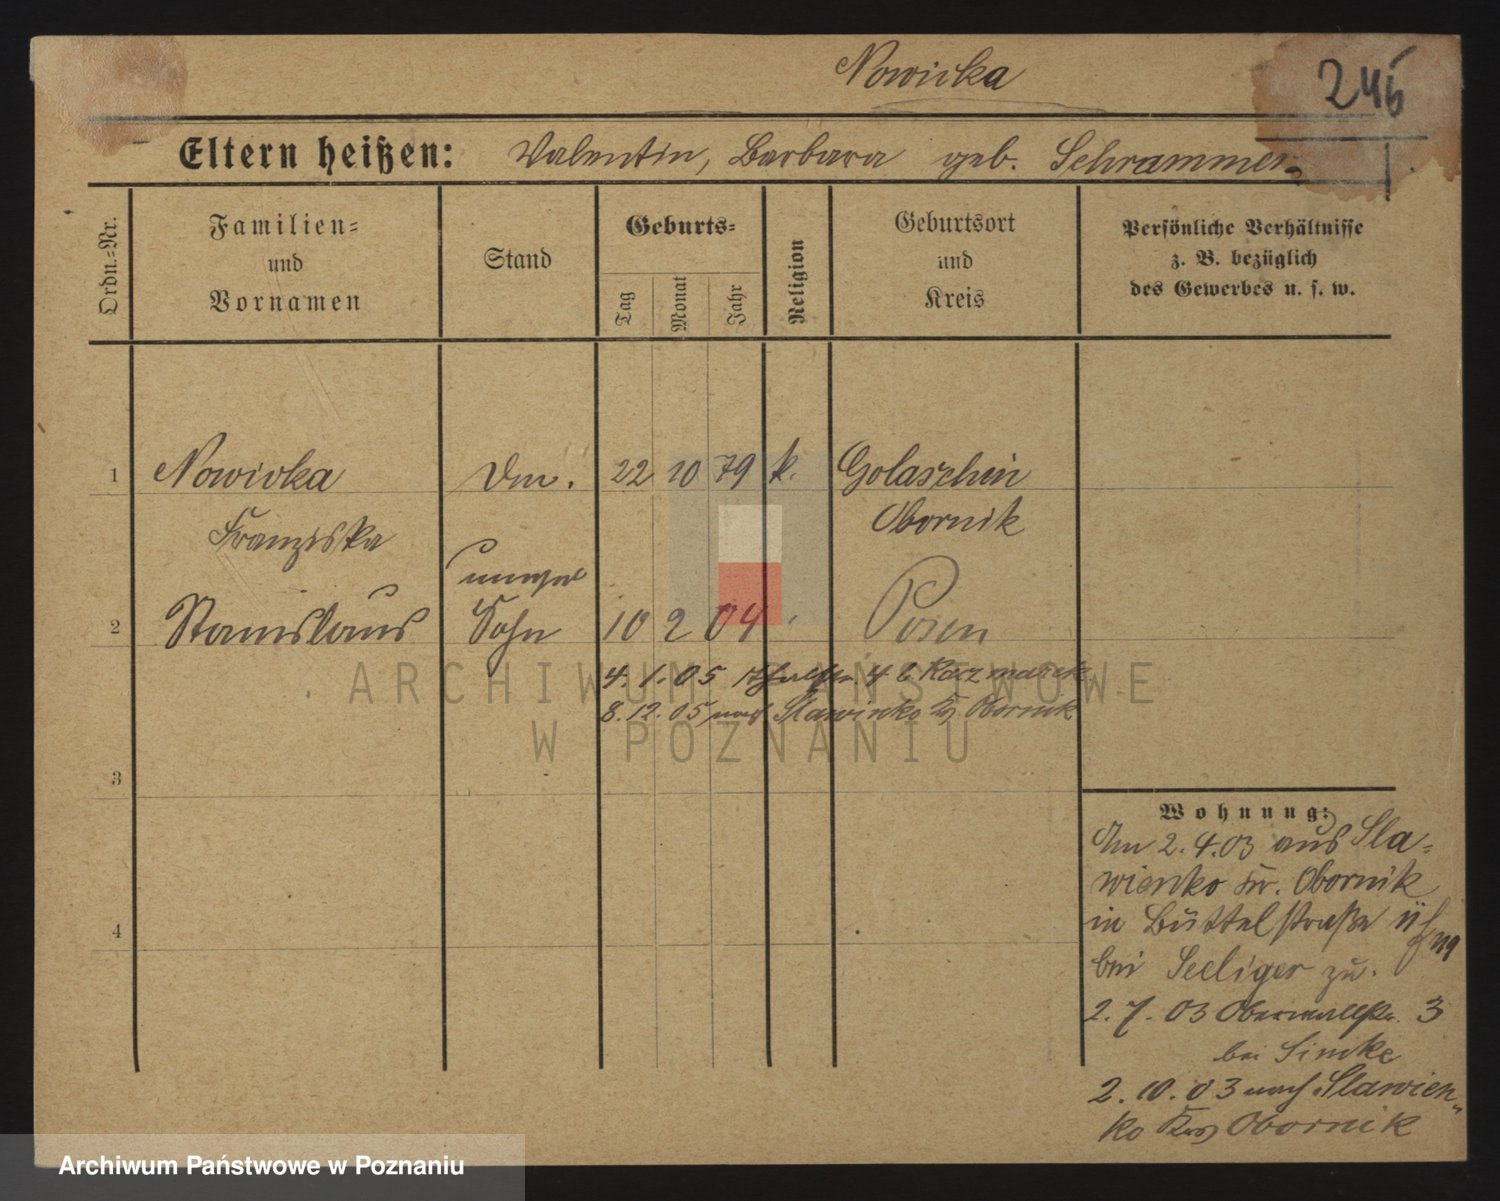 Nowicka
246
Eltern heißen: Valentin, Barbara geb. Schrammer
Ordn.-Nr.
Familien-
und
Vornamen
Stand
Geburts-
Tag
Monat
Jahr
Religion
Geburtsort
und
Kreis
Persönliche Verhältnisse
z. B. bezüglich
des Gewerbes u. s. w.
1 Nowicka 22 10 79 k. Golaszhin
Franziska Obornik
unehel
2 Stanislaus Sohn 10 2 04 Posen
4. 1. 05 4 b Kaczmarek
8. 12. 05 nach Slawinko Obornik
3
4
Wohnung:
Am 2. 4. 03 aus Sla-
wienko Kr. Obornik
in Büttelstraße 11
bei Seeliger zu.
2. 7. 03 Oberwallstr. 3
bei Simke
2. 10. 03 nach Slawien-
ko Obornik
ARCHIWUM PAŃSTWOWE
W POZNANIU
Archiwum Państwowe w Poznaniu